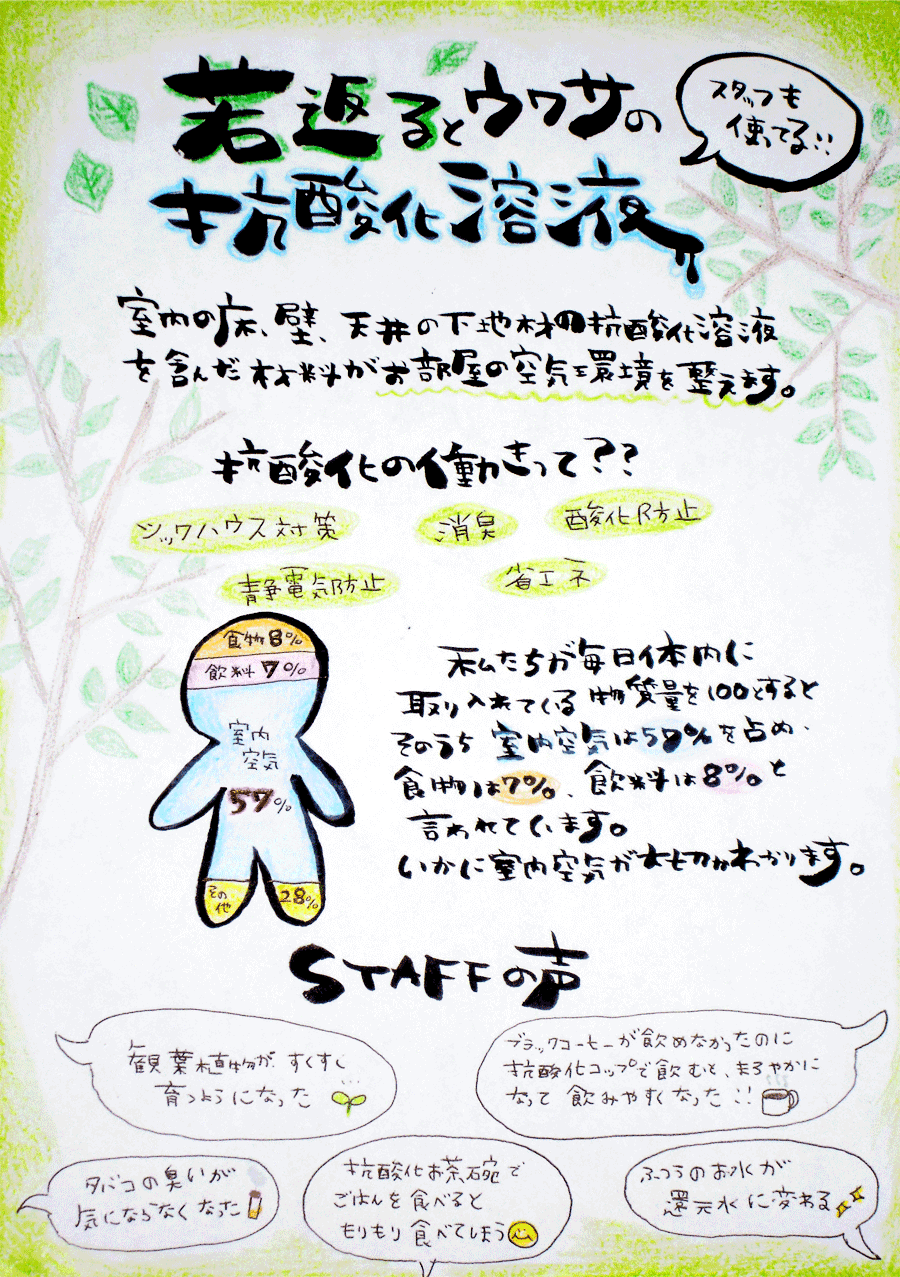 若返るとウワサの
抗酸化溶液
スタッフも
使ってる!!
室内の床、壁、天井の下地材の抗酸化溶液
を含んだ材料がお部屋の空気環境を整えます。
抗酸化の働きって??
シックハウス対策
消臭
酸化防止
静電気防止
省エネ
食物8%
飲料7%
室内
空気
57%
その他
28%
私たちが毎日体内に
取り入れてくる物質量を100とすると
そのうち室内空気は57%を占め、
食物は7%、飲料は8%と
言われています。
いかに室内空気が大切かわかります。
STAFFの声
観葉植物が、すくすく
育つようになった
ブラックコーヒーが飲めなかったのに
抗酸化コップで飲むと、まろやかに
なって飲みやすくなった!!
タバコの臭いが
気にならなくなった
抗酸化お茶碗で
ごはんを食べると
もりもり食べてしまう
ふつうのお水が
還元水に変わる